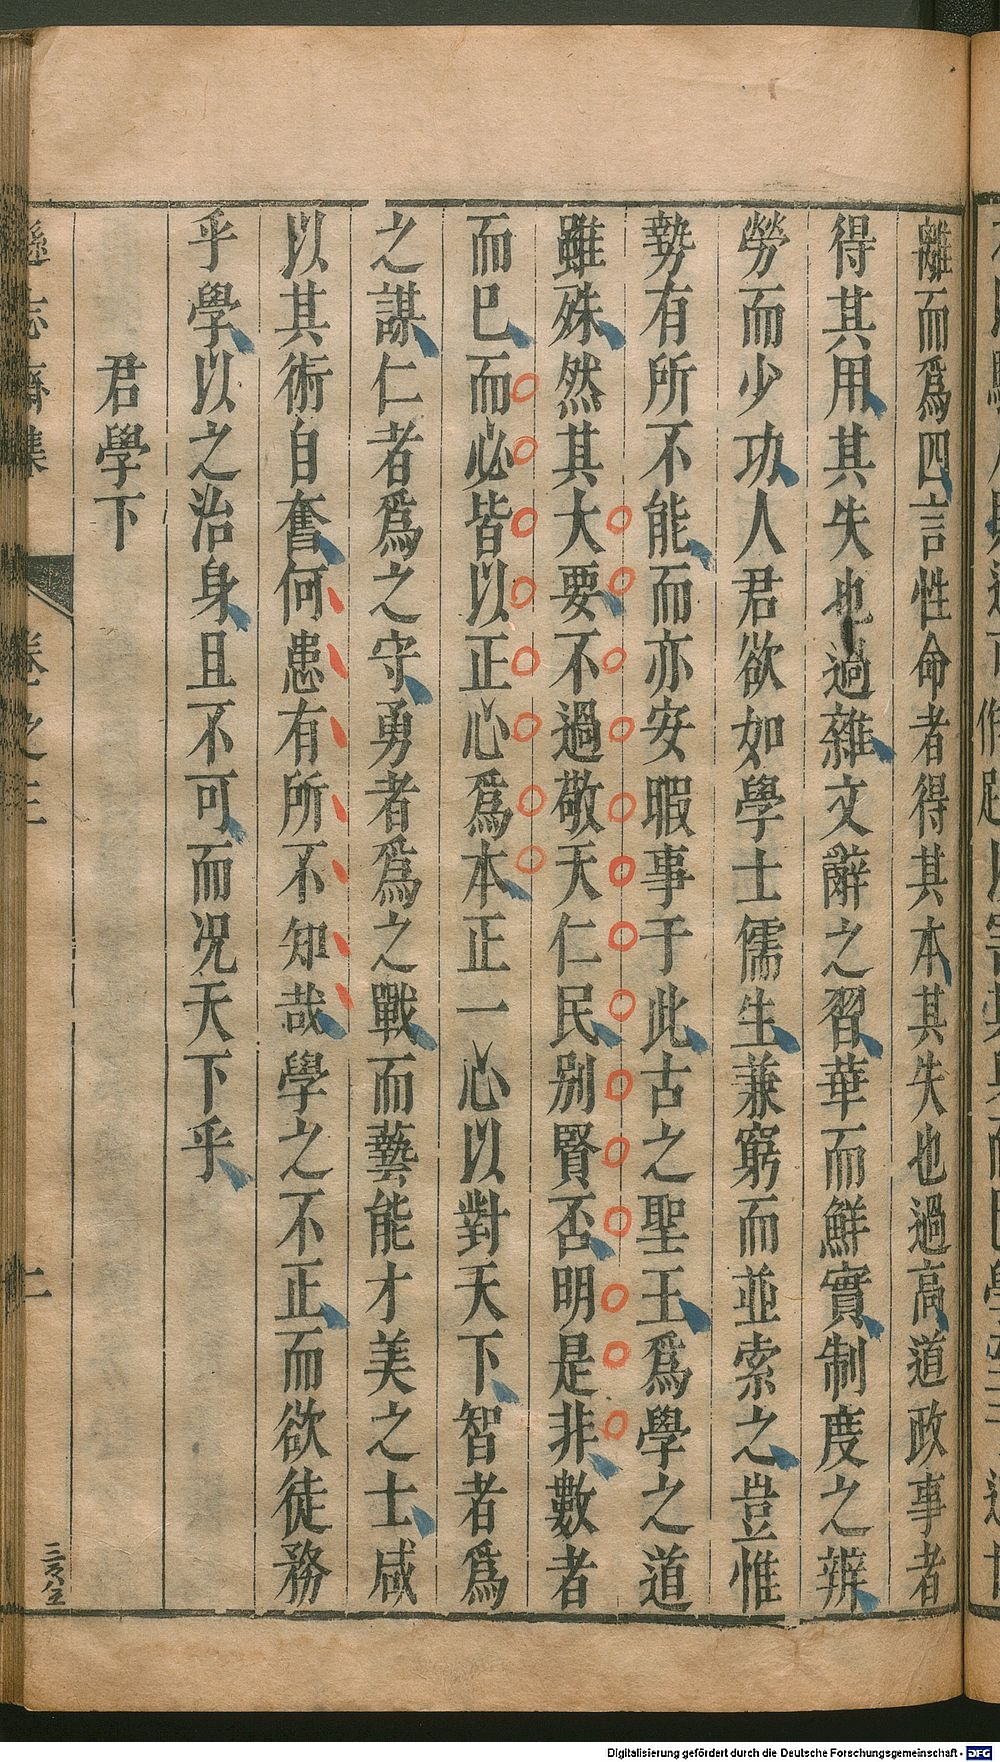 離而爲四言性命者得其本其失也過高道政事者
得其用其失也過雜文辭之習華而鮮實制度之辨
勞而少功人君欲如學士儒生兼窮而並索之豈惟
勢有所不能而亦安暇事于此古之聖王爲學之道
雖殊然其大要不過敬天仁民別賢否明是非數者
而已而必皆以正心爲本正一心以對天下智者爲
之謀仁者爲之守勇者爲之戰而藝能才美之士咸
以其術自奮何患有所不知哉學之不正而欲徒務
乎學以之治身且不可而况天下乎
君學下
遜志齋集
卷之三
二
Digitalisierung gefördert durch die Deutsche Forschungsgemeinschaft - DFG